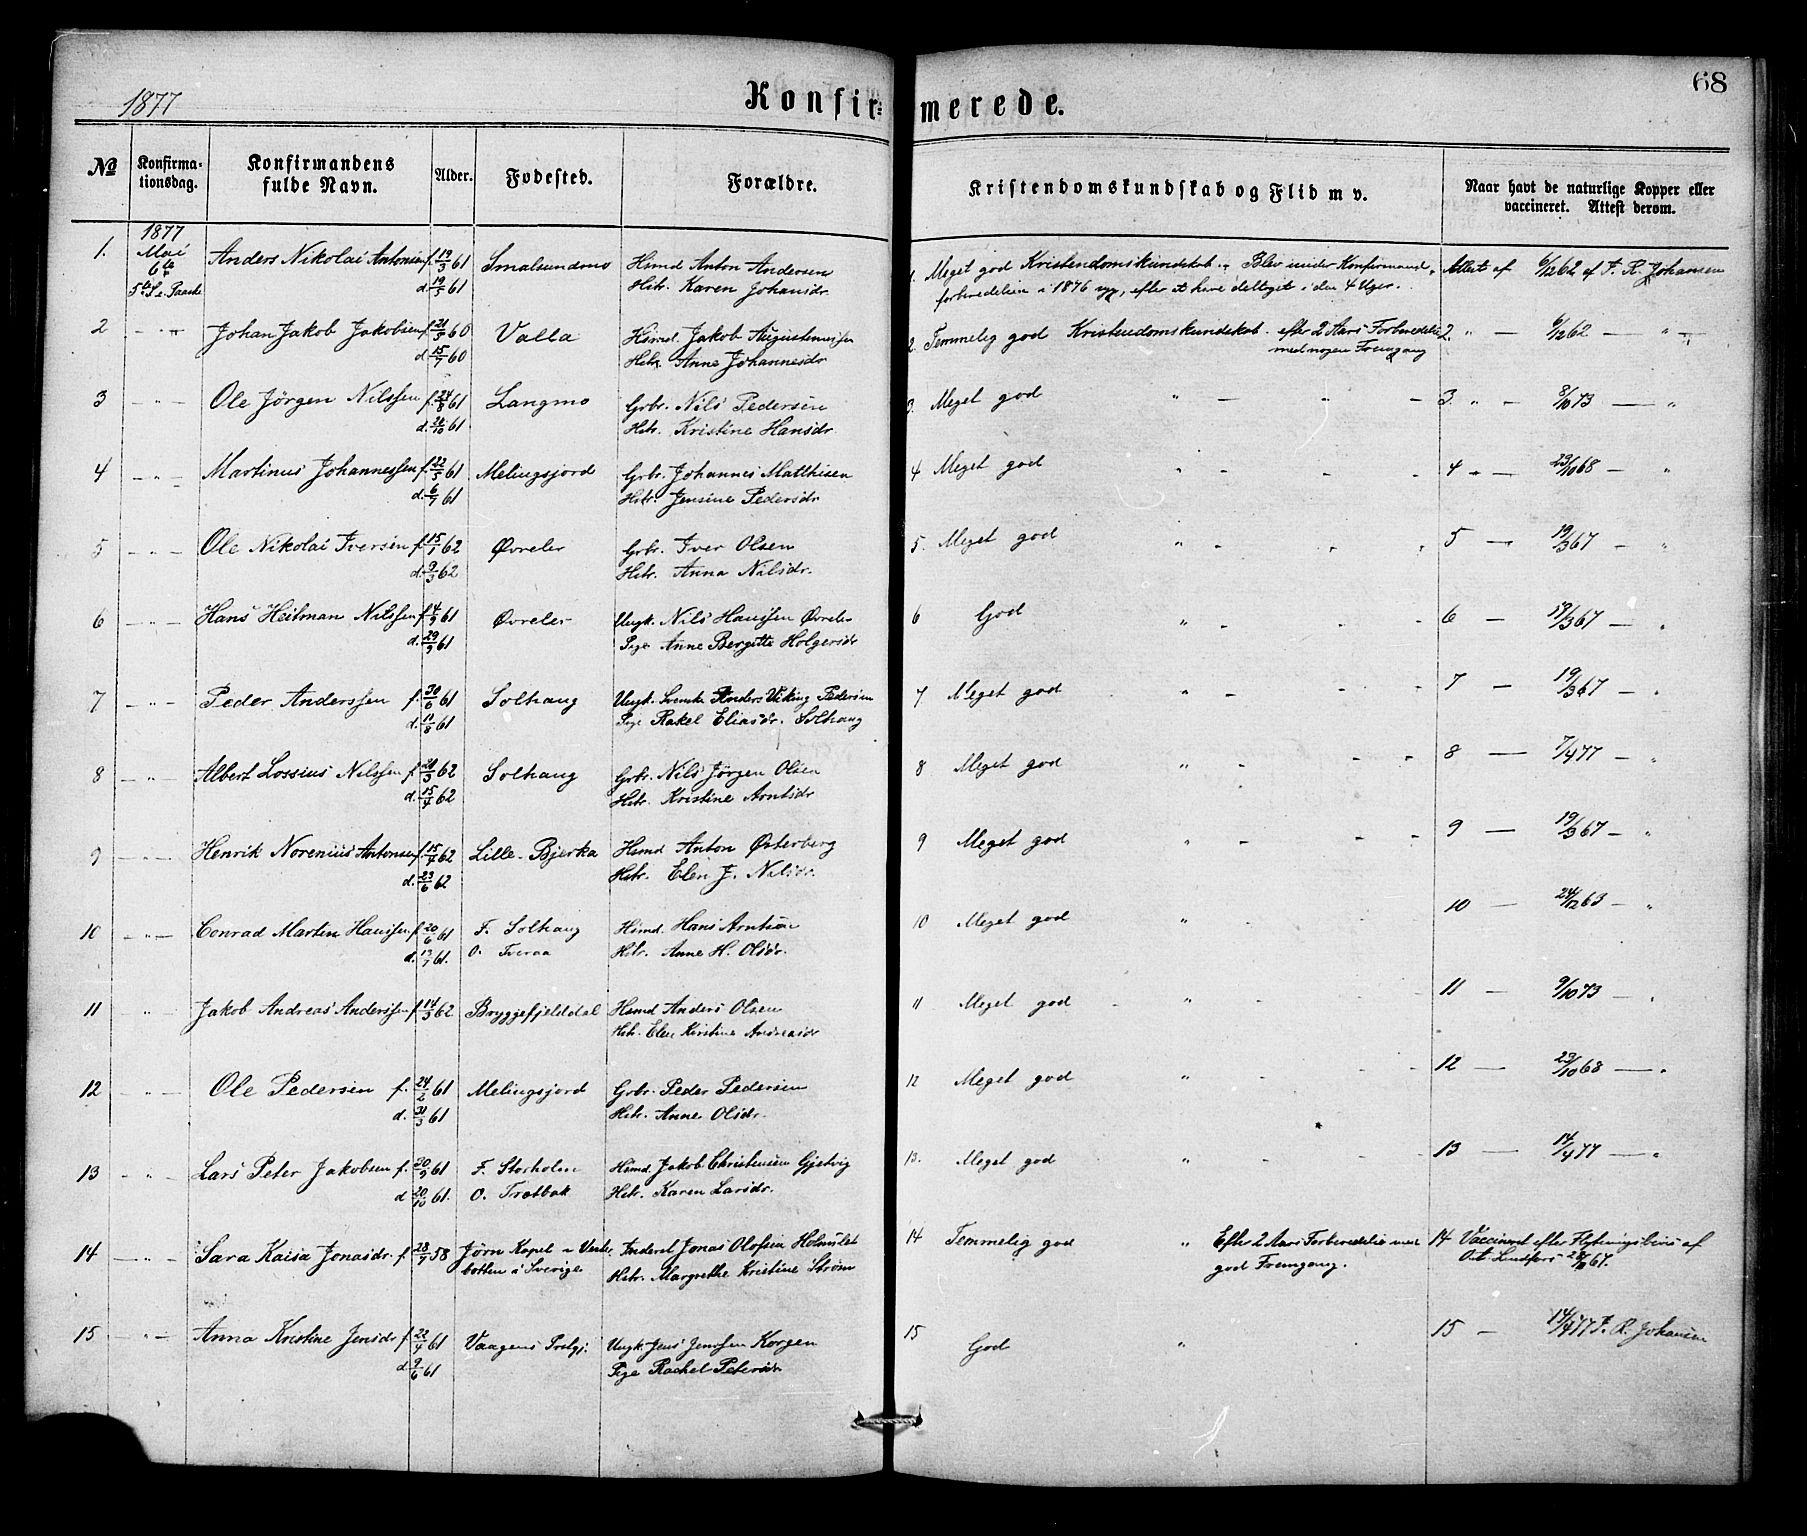 1877
Konfir-
merede.
68
No
Konfirma-
tionsdag.
Konfirmandens
fulde Navn.
Alder.
Fødested.
Forældre.
Kristendomskundskab og Flid m v.
Naar havt de naturlige Kopper eller
vaccineret. Attest derom.
1877
1. Mai Anders Nikolai Antonsen f. 19/3 61 Smalsundmo Hsmd Anton Andersen 1. Meget god Kristendomskundskab. Blev under Konfirmand- Attest af 6/12 62 af F. R. Johansen
6te d. 19/5 61 Hstr. Karen Johansdr. forberedelsen i 1876 syg, efter at have deltaget i den 4 Uger.
5te S. e. Paaske
2 - " - Johan Jakob Jakobsen f. 21/5 60 Valla Hsmd. Jakob Augustinussen 2. Temmelig god Kristendomskundskab. efter 2 Aars Forberedelse 2. " - 6/12 62 - " -
d. 15/7 60 Hstr. Anne Johannesdr med nogen Fremgang
3 - " - Ole Jörgen Nilssen f. 24/8 61 Langmo Grbr. Nils Pedersen 3. Meget god " - " - 3. " - 8/10 73 - "
d. 20/10 61 Hstr. Kristine Hansdr.
4 - " - Martinus Johannessen f. 22/5 61 Melingsjord Grbr. Johannes Matthisen 4 Meget god " - " - 4 " - 23/10 68 - "
d. 6/7 61 Hstr. Jensine Pedersdr
5 - " - Ole Nikolai Iversen f. 15/1 62 Øvreler Grbr. Iver Olsen 5. Meget god " - " - 5 - 19/3 67 - "
d. 9/3 62 Hstr. Anna Nilsdr.
6 - " - Hans Heitman Nilssen f. 4/9 61 Øvreler Ungk. Nils Hanssen Øvreler 6 God " - " - 6 - 19/3 67 - "
d. 29/9 61 Pige Anne Bergitte Holgersdr
7 - " - Peder Anderssen f. 30/6 61 Solhaug Ungk. Svenske Anders Viking Pedersen 7 Meget god " - " - 7 - 19/3 67 - "
d. 11/8 61 Pige Rakel Eliasdr. Solhaug
8 - " - Albert Lossius Nilssen f. 20/3 62 Solhaug Grbr. Nils Jörgen Olsen 8 Meget god " - " - 8 - 7/4 77 - "
d. 15/4 62 Hstr. Kristine Arntsdr
9 - " - Henrik Norenius Antonsen f. 15/4 62 Lille-Bjerka Hsmd Anton Østerberg 9 Meget god " - " - 9 - 19/3 67 - "
d. 23/6 62 Hstr. Elen J. Nilsdr.
10 - " - Conrad Martin Hanssen f. 20/6 61 F. Solhaug Hsmd. Hans Arntsen 10 Meget god " 10 - 24/12 63 - "
d. 17/7 61. O. Tveraa Hstr. Anne H. Olsdr.
11 - " - Jakob Andreas Anderssen f. 14/3 62 Bryggefjelddal Hsmd Anders Olsen 11 Meget god " - " - 11 - 9/10 73 - "
Hstr. Elen Kirstine Andreasdr
12 - " - Ole Pedersen f. 24/2 61 Melingsjord Grbr. Peder Pedersen 12 Meget god " - " - 12 - 23/10 68 - "
d. 31/3 61 Hstr. Anne Olsdr.
13 - " - Lars Peter Jakobsen f. 20/9 61 F. Storholm Hsmd. Jakob Christensen Gjetvig 13. Meget god " - " - 13 - 14/4 77 - "
d 20/10 61. O. Trætbak Hstr. Karen Larsdr.
14 - " - Sara Kaisa Jonasdr. f. 28/7 58 Jörn Kapel i Vester- Inderst Jonas Olofsen Holmslet 14 Temmelig god " Efter 2 Aars Forberedelse med 14 Vaccineret efter Flytningsbevis af
botten i Sverige Hstr. Margrethe Kristine Strøm god Fremgang. Lindfors 67.
15 - " - Anna Kristine Jensdr. f. 22/4 61 Vaagens Prstgj. Ungk. Jens Jenssen Korgen 15 God " 15 - 14/4 77 F. R. Johansen
d. 9/6 61 Pige Rachel Petersdr